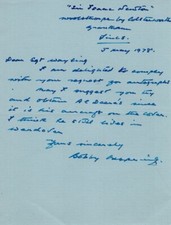 "Sir Isaac Newton"
Woolsthorpe by Colsterworth
Grantham
Lincs.
5 May 1978.
Dear Sgt
I am delighted to comply
with your request for autographs
- may I suggest you try
and obtain Al Deere's since
it is his aircraft on the cover.
I think he still lives in
Wendover
Yours sincerely
Bobby